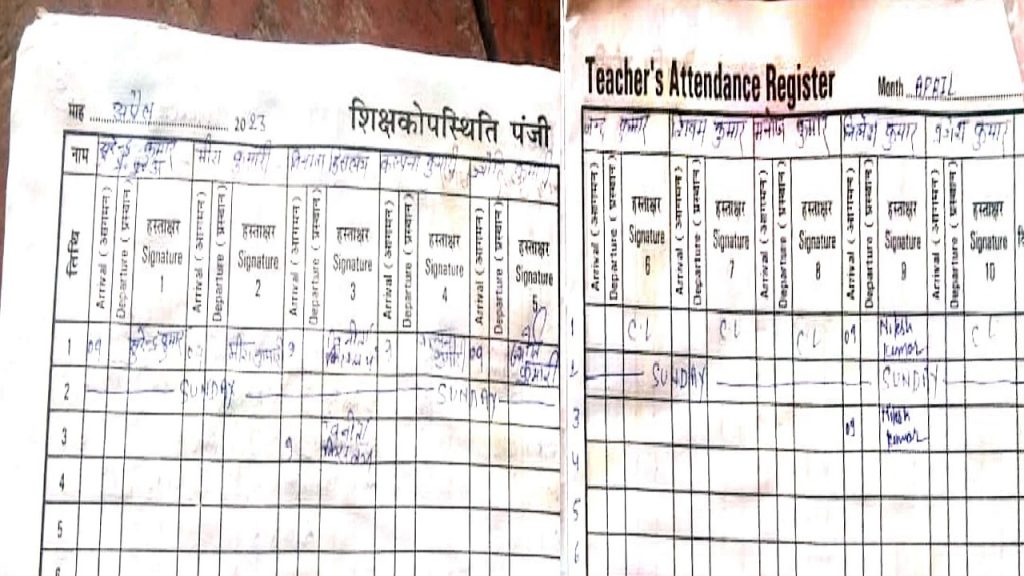 माह अप्रैल 2023 शिक्षकोपस्थिति पंजी
नाम कुमार मीरा कुमारी कल्पना कुमारी
तिथि Arrival (आगमन) Departure (प्रस्थान) हस्ताक्षर Signature 1 Arrival (आगमन) Departure (प्रस्थान) हस्ताक्षर Signature 2 Arrival (आगमन) Departure (प्रस्थान) हस्ताक्षर Signature 3 Arrival (आगमन) Departure (प्रस्थान) हस्ताक्षर Signature 4 Arrival (आगमन) Departure (प्रस्थान) हस्ताक्षर Signature 5
1 09 कुमार मीरा कुमारी 9 09 कुमारी
2 SUNDAY SUNDAY
3 9
4
5
6
Teacher's Attendance Register Month APRIL
कुमार शिवम कुमार मनोज कुमार निकेश कुमार कुमार
Arrival (आगमन) Departure (प्रस्थान) हस्ताक्षर Signature 6 Arrival (आगमन) Departure (प्रस्थान) हस्ताक्षर Signature 7 Arrival (आगमन) Departure (प्रस्थान) हस्ताक्षर Signature 8 Arrival (आगमन) Departure (प्रस्थान) हस्ताक्षर Signature 9 Arrival (आगमन) Departure (प्रस्थान) हस्ताक्षर Signature 10
1 CL CL CL 09 Nikesh kumar CL
SUNDAY SUNDAY
3 09 Nikesh kumar
4
5
6